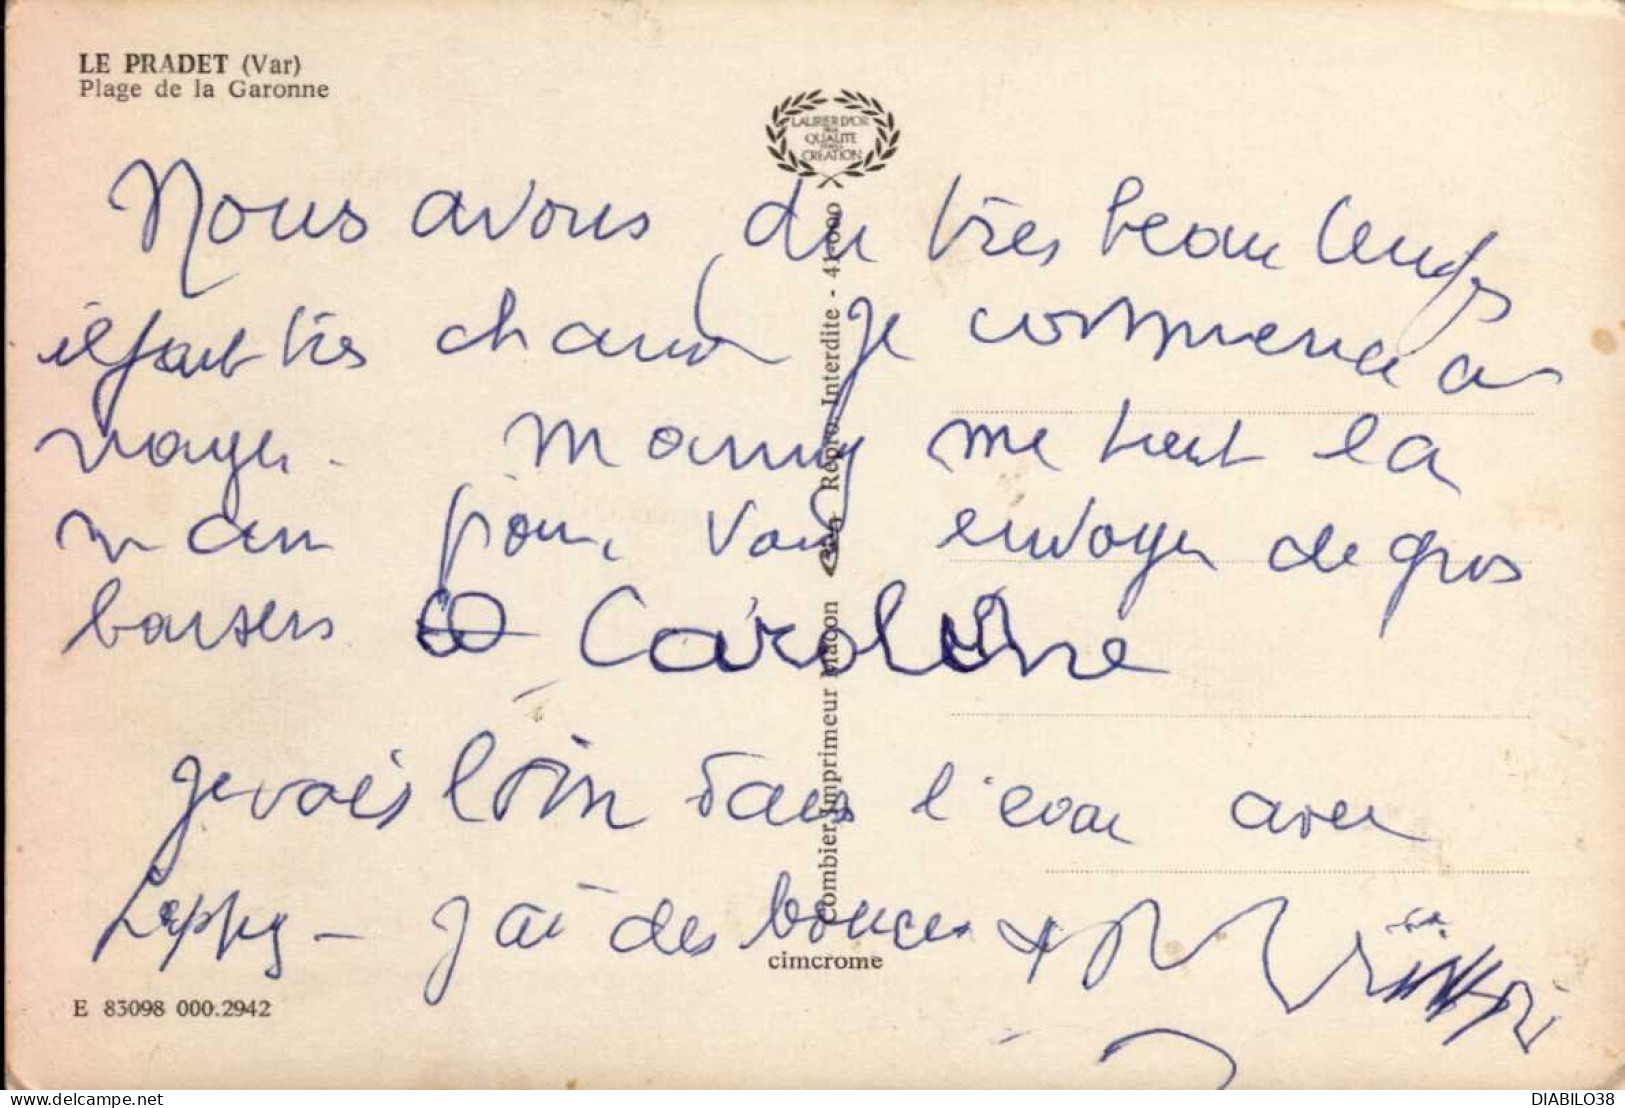 LE PRADET (Var)
Plage de la Garonne
LAURIER D'OR
QUALITE
CREATION
Nous avons du très beau temps
il fait très chaud je commence à
nager. Mamy me tient la
main pour vous envoyer de gros
baisers Caroline
je vais loin dans l'eau avec
Pappy - J'ai des bouées
Combier Imprimeur Macon Repro. Interdite - 41-000
cimcrome
E 83098 000.2942
Tous droits réservés pour tous pays
DIABILO38